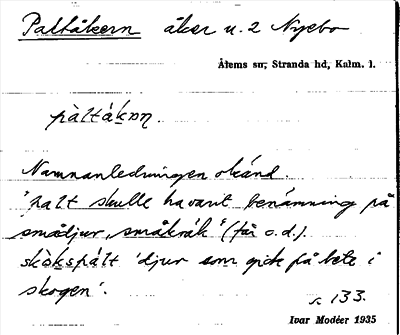 Paltåkern åker u. 2 Nyebo
Ålems sn, Stranda hd, Kalm. l.
pàltákɒn
Namnanledningen okänd.
"palt skulle ha varit benämning på
smådjur, småkräk" (får o.d.).
skòkspált 'djur som gick på bete i
skogen'.
s. 133.
Ivar Modéer 1935